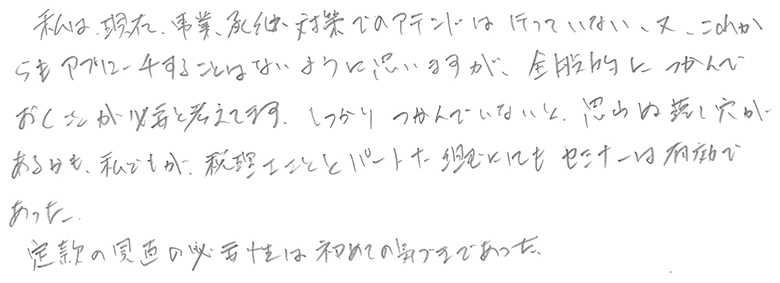 私は、現在、事業承継対策でのアテンドは行っていない、又、これか
らもアプローチすることはないように思いますが、全般的につかんで
おくことが必要と考えてます、しっかりつかんでいないと、思わぬ落し穴が
あるかも、私どもが、税理士さんとパートナー組むにしてもセミナーは有効で
あった。
定款の見直の必要性は初めての気づきであった。